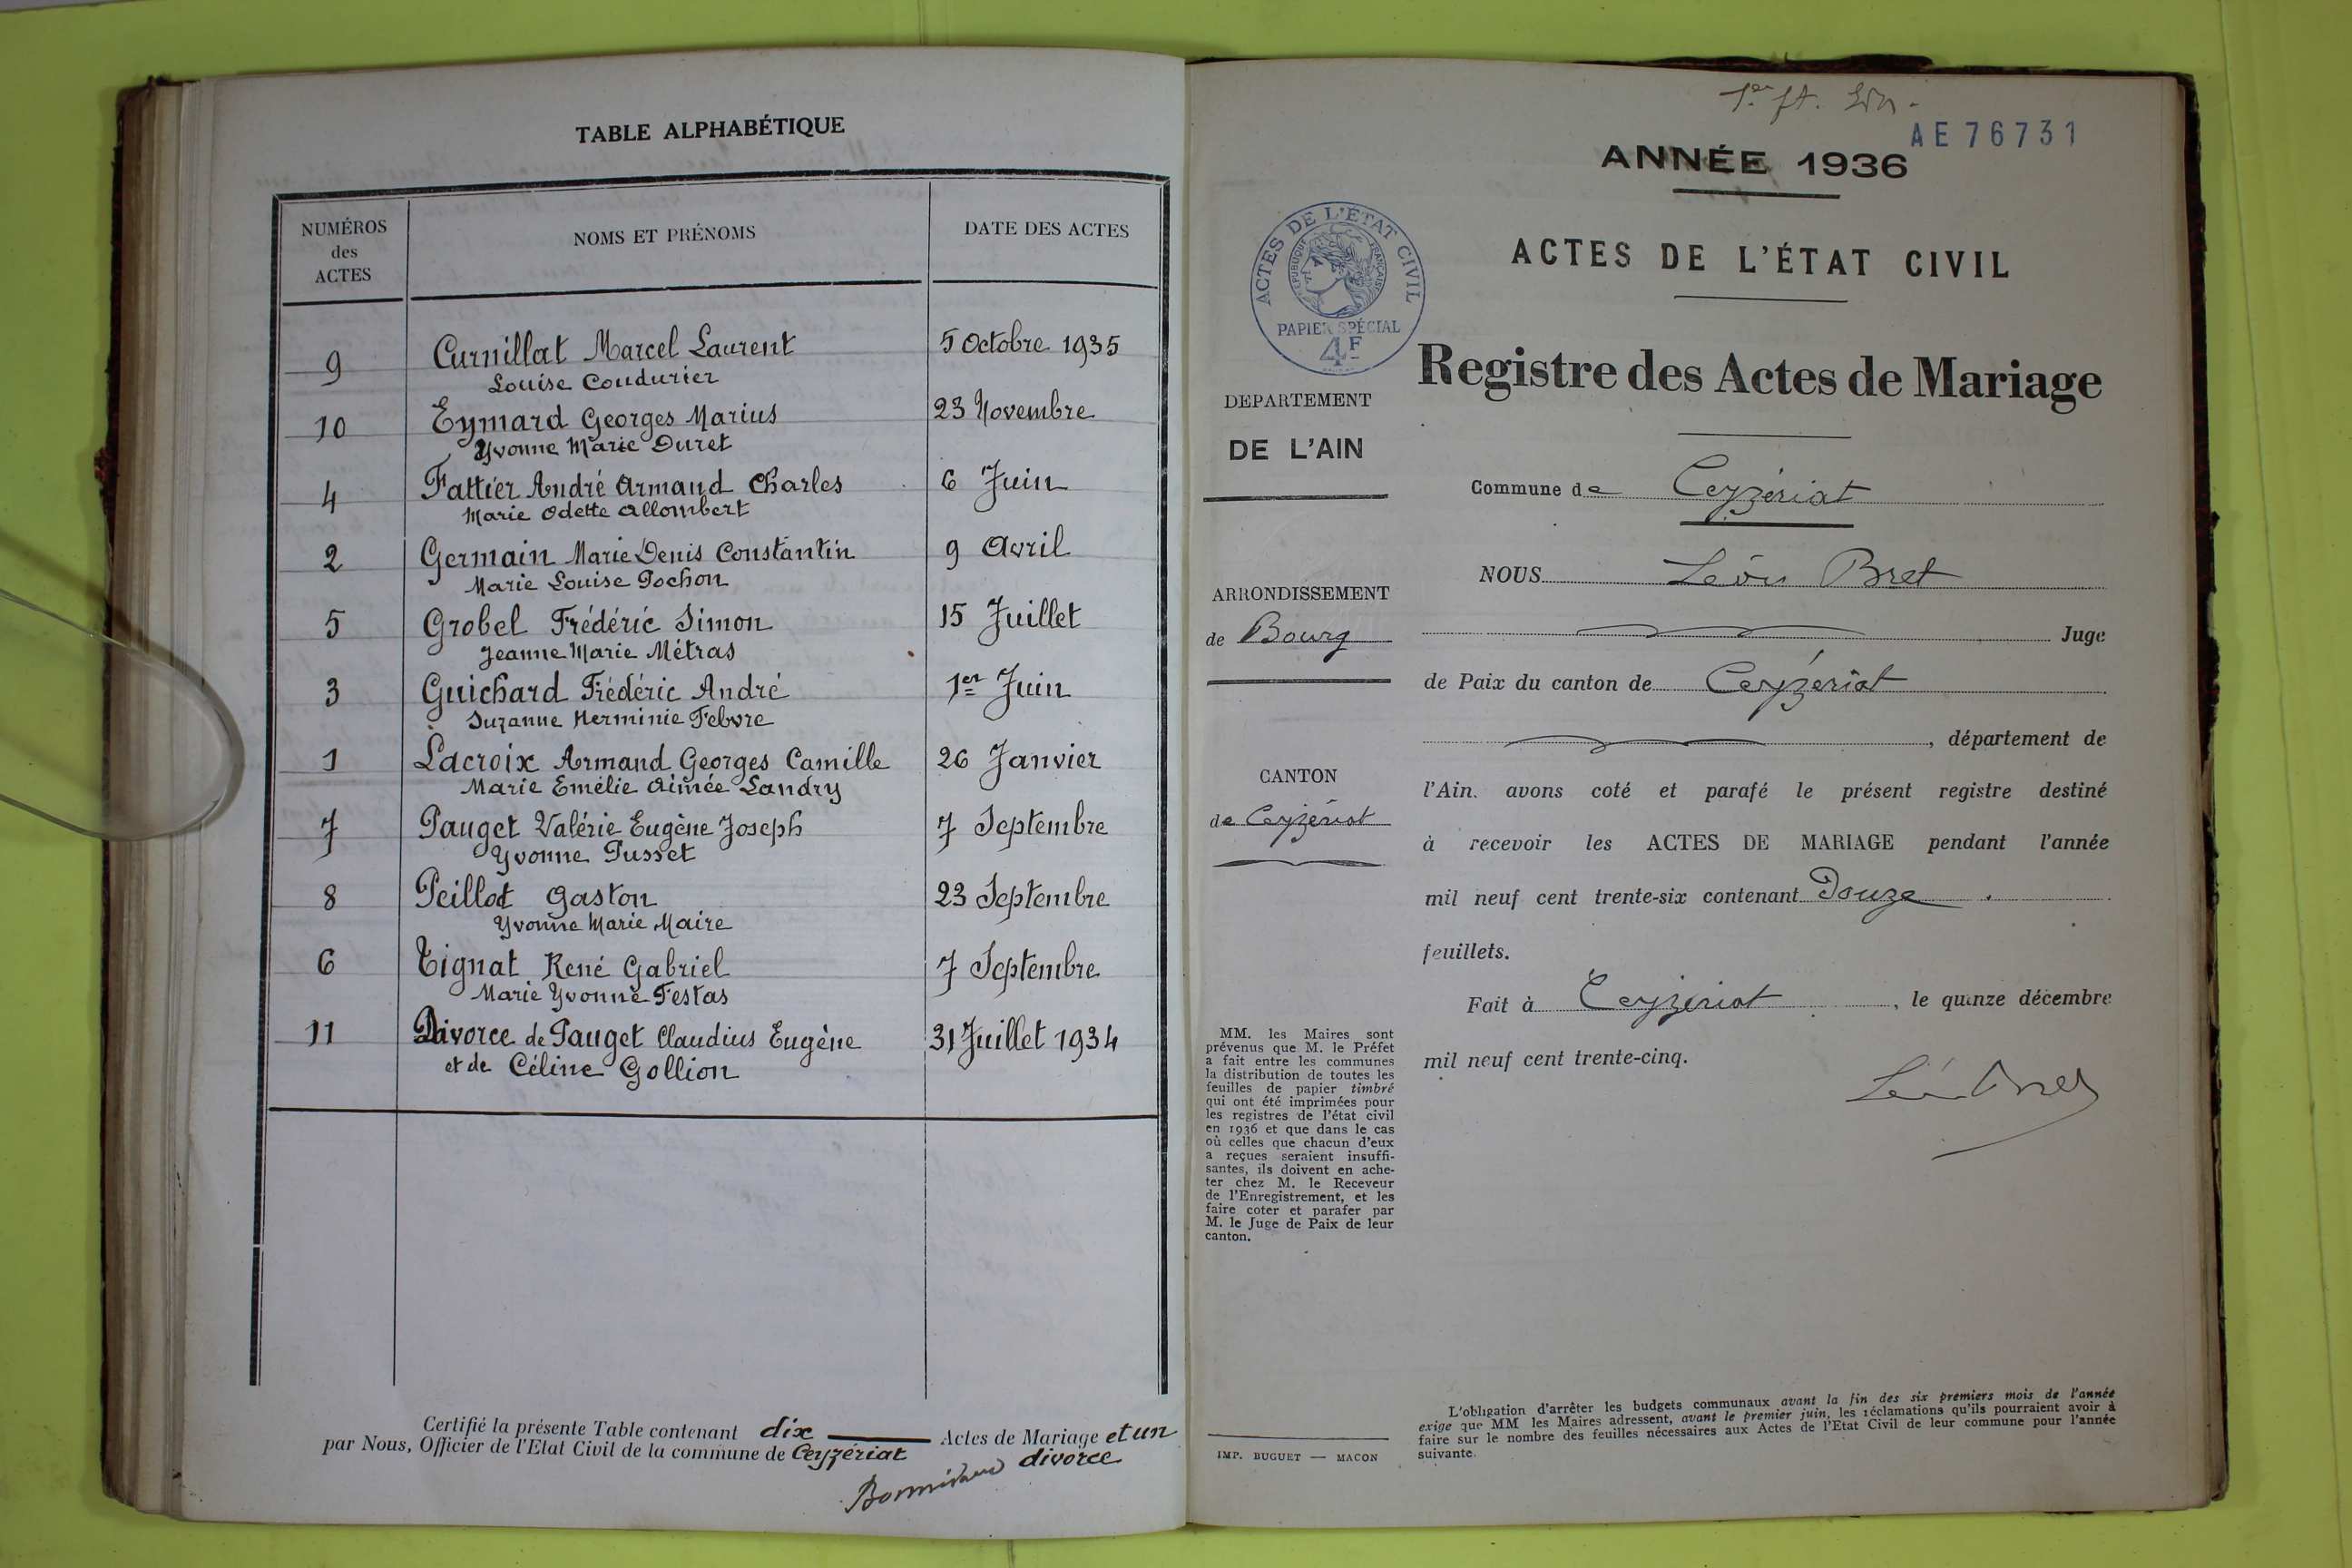 TABLE ALPHABÉTIQUE
NUMÉROS
des
ACTES
NOMS ET PRÉNOMS
DATE DES ACTES
9 Curnillat Marcel Laurent 5 Octobre 1935
Louise Coudurier
10 Eymard Georges Marius 23 Novembre
Yvonne Marie Duret
4 Fattier André Armand Charles 6 Juin
Marie Odette Allombert
2 Germain Marie Denis Constantin 9 Avril
Marie Louise Pochon
5 Grobel Frédéric Simon 15 Juillet
Jeanne Marie Métras
3 Guichard Frédéric André 1er Juin
Suzanne Herminie Febvre
1 Lacroix Armand Georges Camille 26 Janvier
Marie Emélie Aimée Landry
7 Pauget Valérie Eugène Joseph 7 Septembre
Yvonne Pusset
8 Peillod Gaston 23 Septembre
Yvonne Marie Maire
6 Tignat René Gabriel 7 Septembre
Marie Yvonne Festas
11 Divorce de Pauget Claudius Eugène 31 Juillet 1934
et de Céline Gollion
Certifié la présente Table contenant dix Actes de Mariage et un
par Nous, Officier de l'Etat Civil de la commune de Ceyzériat divorce
AE 76731
ANNÉE 1936
ACTES DE L'ÉTAT CIVIL
RÉPUBLIQUE FRANÇAISE
PAPIER SPÉCIAL
4F
ACTES DE L'ÉTAT CIVIL
Registre des Actes de Mariage
DEPARTEMENT
DE L'AIN
ARRONDISSEMENT
de Bourg
CANTON
de Ceyzériat
MM. les Maires sont
prévenus que M. le Préfet
a fait entre les communes
la distribution de toutes les
feuilles de papier timbré
qui ont été imprimées pour
les registres de l'état civil
en 1936 et que dans le cas
où celles que chacun d'eux
a reçues seraient insuffi-
santes, ils doivent en ache-
ter chez M. le Receveur
de l'Enregistrement, et les
faire coter et parafer par
M. le Juge de Paix de leur
canton.
IMP. BUGUET — MACON
Commune de Ceyzériat
NOUS Léon Bret
Juge
de Paix du canton de Ceyzériat
, département de
l'Ain. avons coté et parafé le présent registre destiné
à recevoir les ACTES DE MARIAGE pendant l'année
mil neuf cent trente-six contenant Douze
feuillets.
Fait à Ceyzériat, le quinze décembre
mil neuf cent trente-cinq.
L'obligation d'arrêter les budgets communaux avant la fin des six premiers mois de l'année
exige que MM les Maires adressent, avant le premier juin, les réclamations qu'ils pourraient avoir à
faire sur le nombre des feuilles nécessaires aux Actes de l'Etat Civil de leur commune pour l'année
suivante.